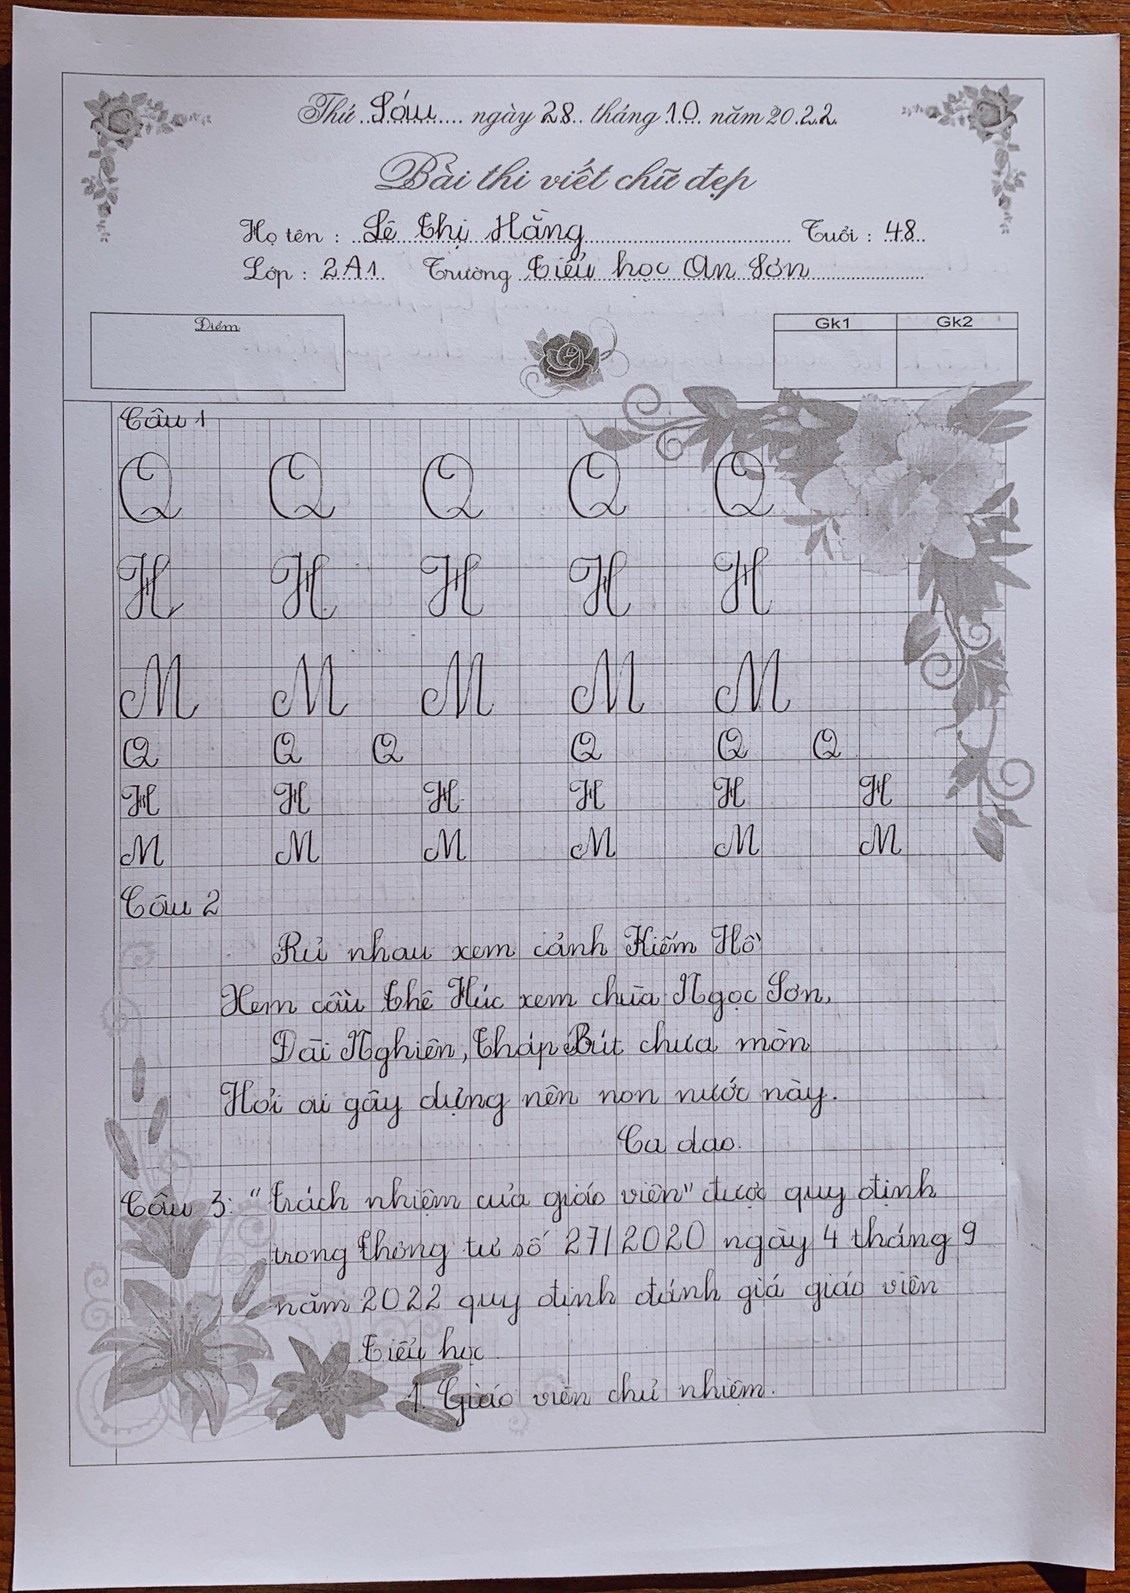 Thứ Sáu ngày 28 tháng 10 năm 2022
Bài thi viết chữ đẹp
Họ tên : Lê Thị Hằng Tuổi : 48
Lớp : 2A1 Trường Tiểu học An Sơn
Điểm Gk1 Gk2
Câu 1
Q Q Q Q Q
H H H H H
M M M M M
Q Q Q Q Q Q
H H H H H H
M M M M M M
Câu 2
Rủ nhau xem cảnh Kiếm Hồ
Xem cầu Thê Húc xem chùa Ngọc Sơn,
Đài Nghiên, Tháp Bút chưa mòn
Hỏi ai gây dựng nên non nước này.
Ca dao.
Câu 3: "Trách nhiệm của giáo viên" được quy định
trong thông tư số 27/2020 ngày 4 tháng 9
năm 2022 quy định đánh giá giáo viên
Tiểu học
1. Giáo viên chủ nhiệm.